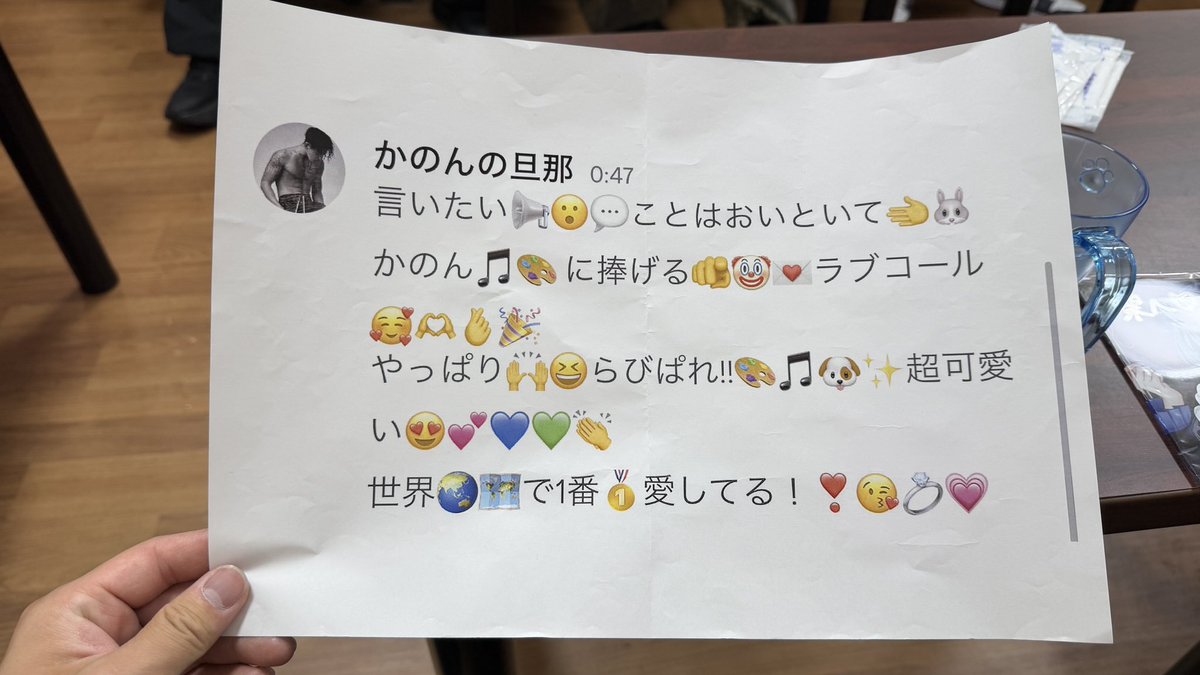 かのんの旦那 0:47
言いたい📢😮💬ことはおいといて🫱🐰
かのん🎵🎨に捧げる🫵🤡💌ラブコール
🥰🫶🫰🎉
やっぱり🙌😆らびぱれ!!🎨🎵🐶✨超可愛
い😍💕💙💚👏
世界🌏🗺️で1番🥇愛してる！❣️😘💍💗